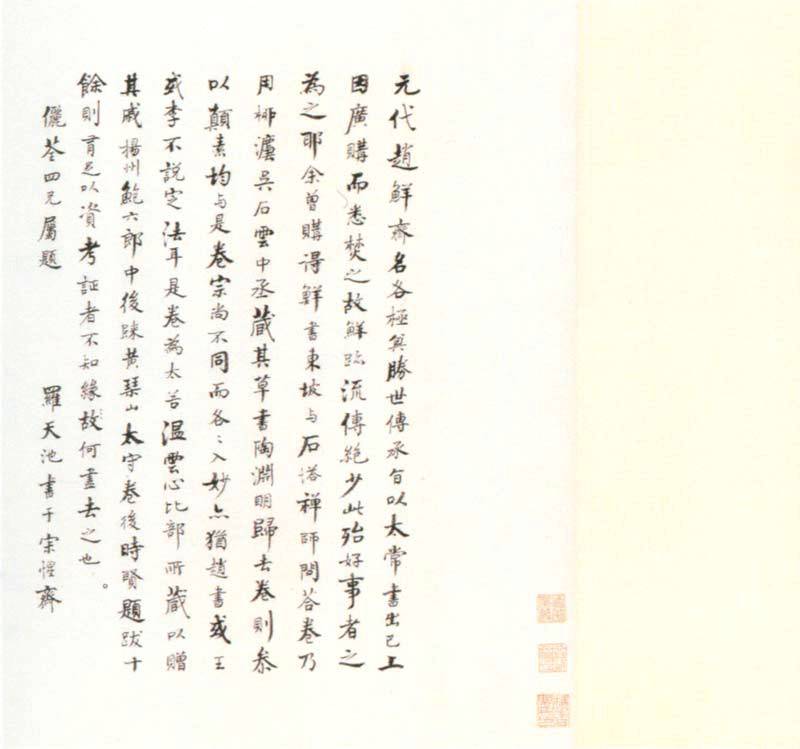 元代趙鮮齊名各極其勝世傳承旨以太常書出己上
因廣購而悉焚之故鮮跡流傳絕少此殆好事者之
為之耶余曾購得鮮書東坡与石塔禅師問荅卷乃
用栁瀍吳石雲中丞蔵其草書陶淵明歸去卷則叅
以顛素均与是卷宗尚不同而各〻入妙亦猶趙書或王
或李不說定法耳是卷為太苦溫雲心比部所蔵以贈
其戚揚州鮑六郎中後歸黃琴山太守卷後時賢題跋十
餘則有足以資考証者不知緣故何盡去之也。
儷荃四兄屬題
羅天池書于宗愷齋